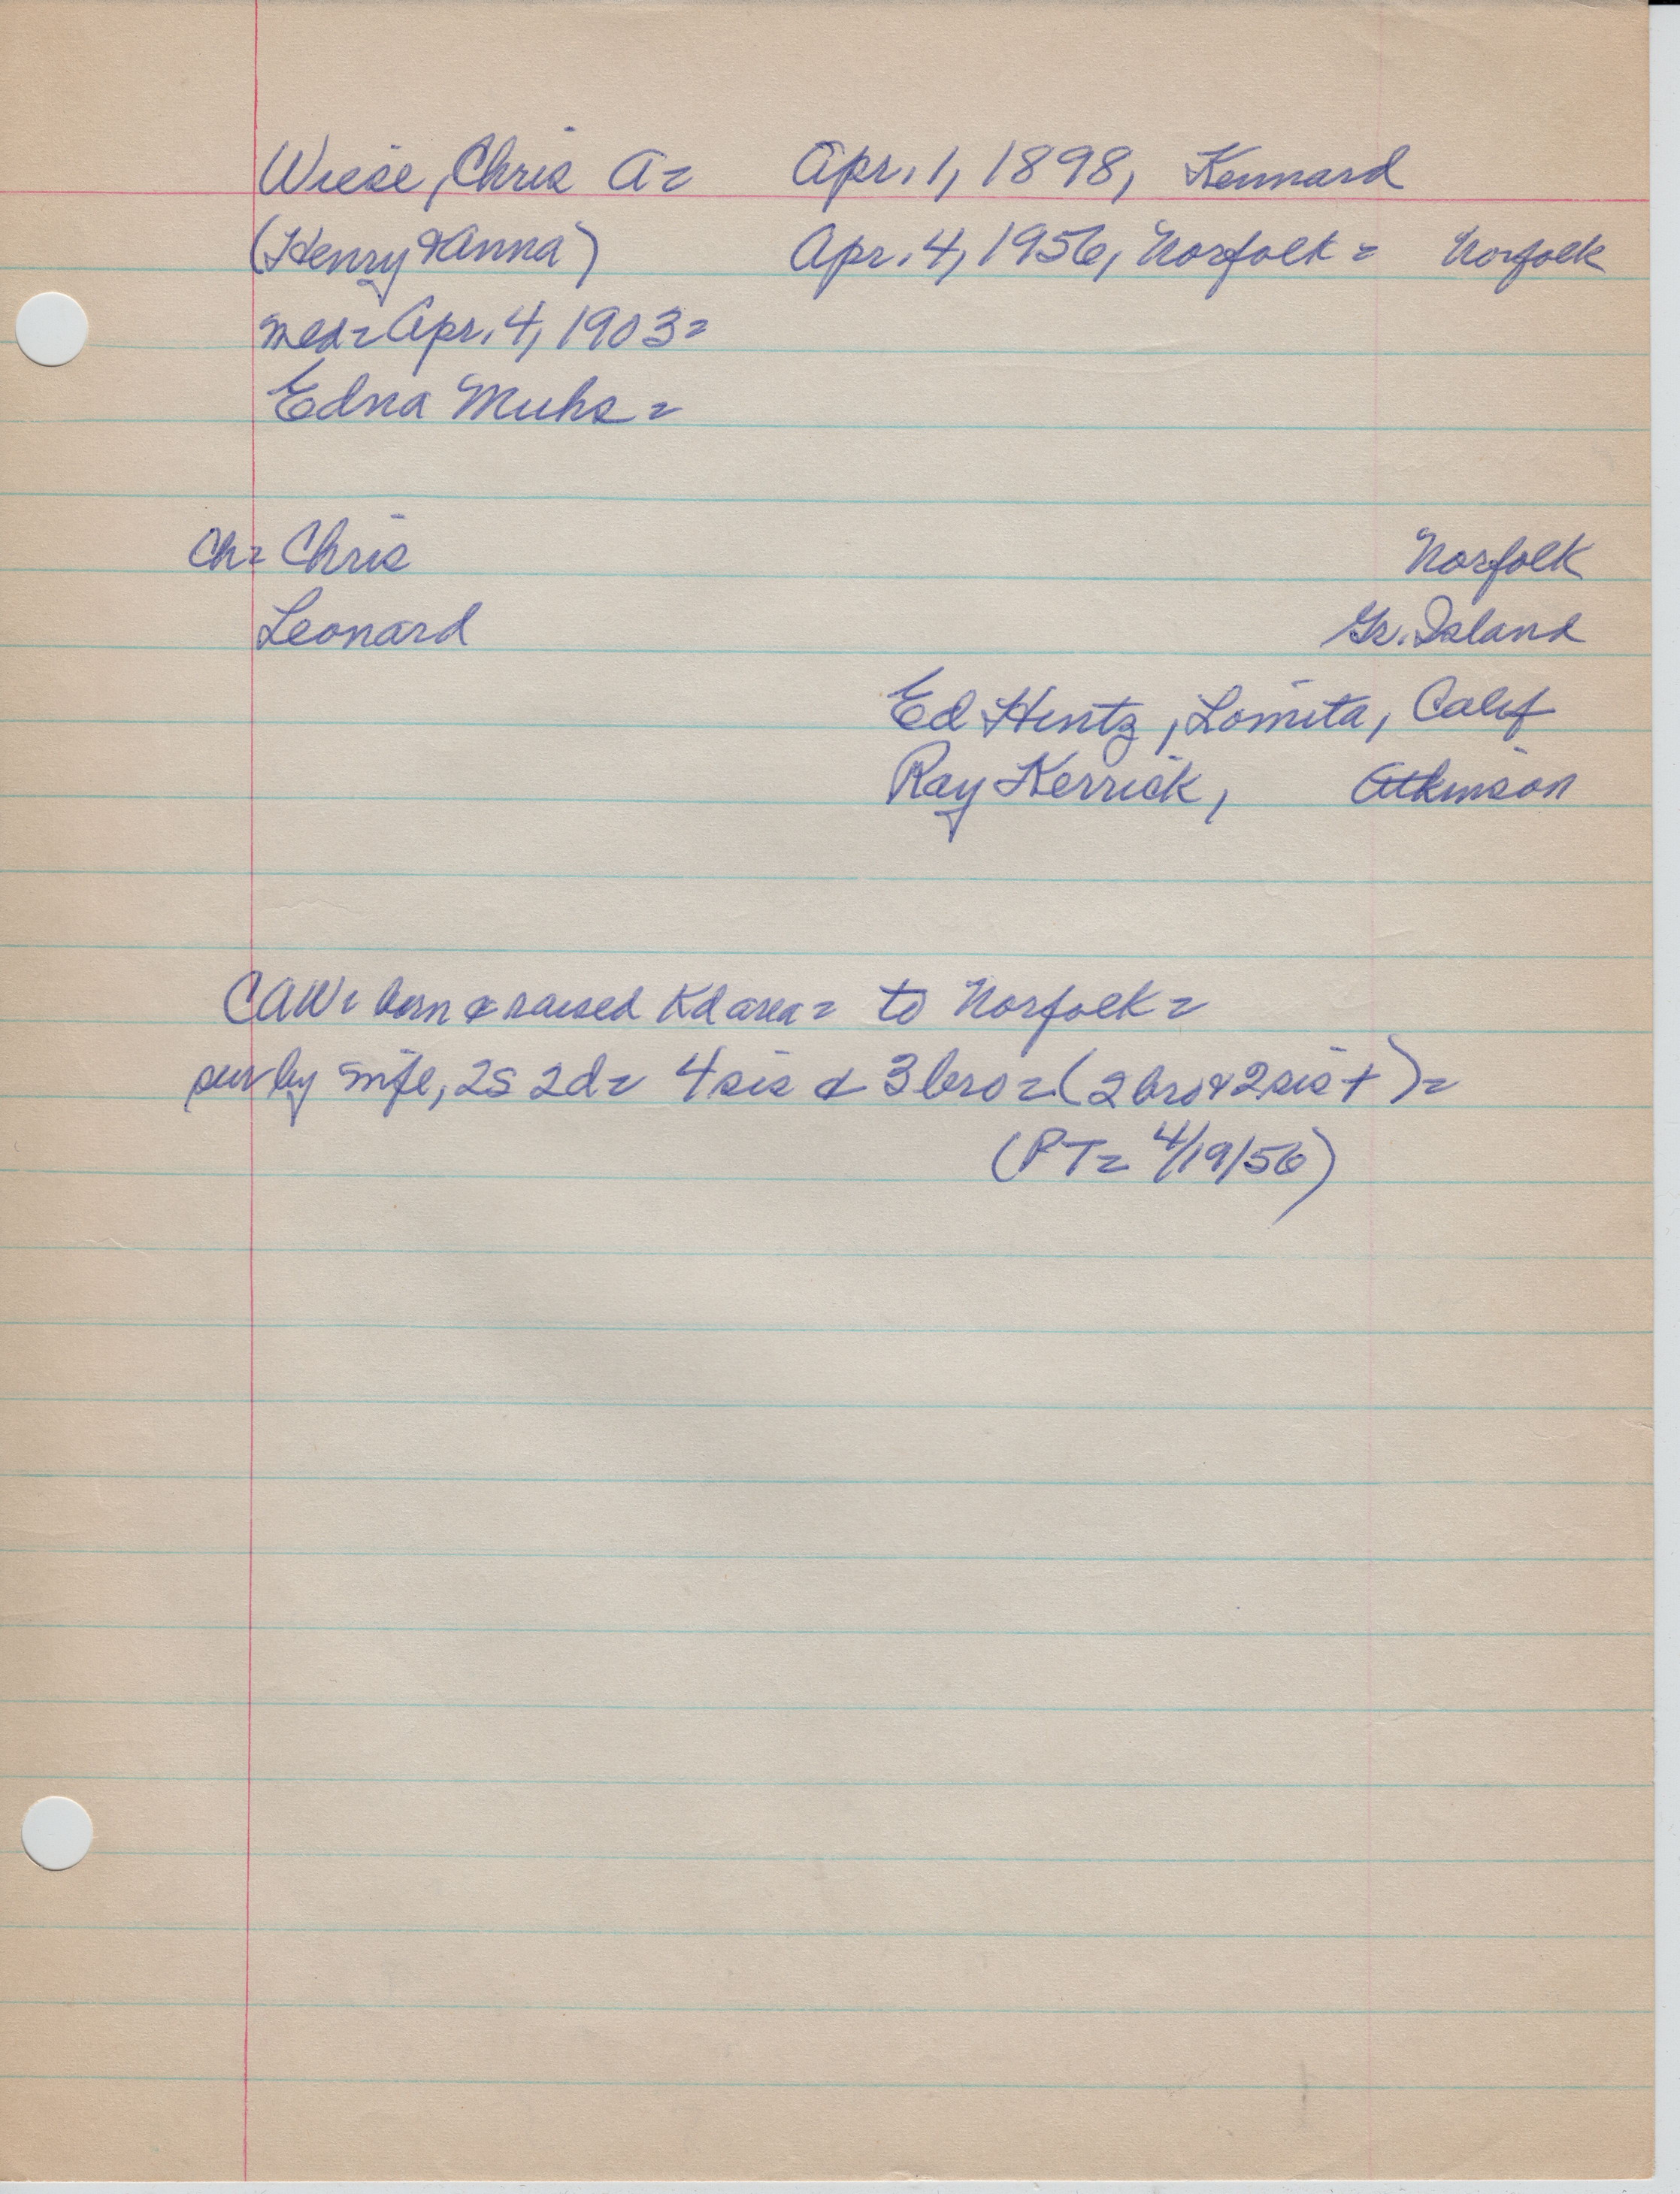 Wiese, Chris A= Apr. 1, 1898, Kennard
(Henry & Anna) Apr. 4, 1956, Norfolk= Norfolk
med= Apr. 4, 1903=
Edna Muhs=
Ch= Chris Norfolk
Leonard Gr. Island
Ed Hintz, Lomita, Calif
Ray Kerrick, Atkinson
CAW= born & raised Kd area= to Norfolk=
sur by wife, 2s 2d= 4 sis & 3 bro= (2 bro & 2 sis +)=
(PT= 4/19/56)